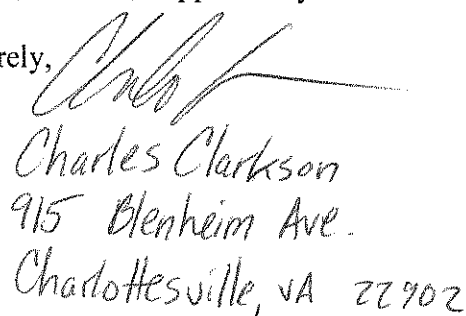 rely,
Charles Clarkson
915 Blenheim Ave.
Charlottesville, VA 22902